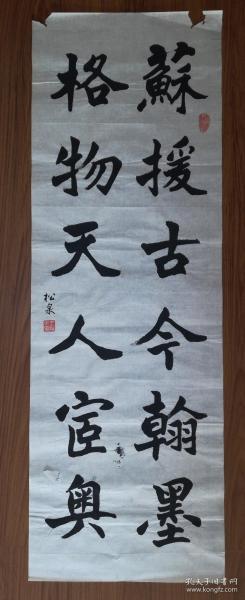 蘇援古今翰墨
格物天人宧奥
松泉
孔夫子旧书网
www.kongfz.com